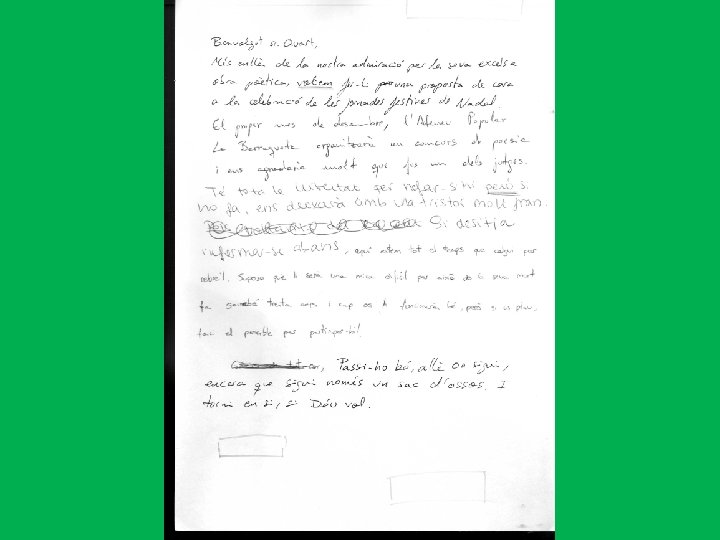 Benvolgut sr. Ovart,
Més enllà de la nostra admiració per la seva excelsa
obra poètica, volem fer-li una proposta de cara
a la celebració de les jornades festives de Nadal.
El proper mes de desembre, l'Ateneu Popular
La organitzarà un concurs de poesia
i ens agradaria molt que fos un dels jutges.
Té tota la llibertat per negar-s'hi però si
ho fa, ens deixarà amb una tristor molt gran.
Si desitja
informar-se abans, aquí estem tot el temps que calgui per
rebre'l. Suposo que li serà una mica difícil per això de la seva mort
fa trenta anys i cap os li funcionarà bé, però si us plau,
faci el possible per participar-hi!
Passi-ho bé, allà on sigui,
encara que sigui només un sac d'ossos. I
torni en si, si Déu vol.